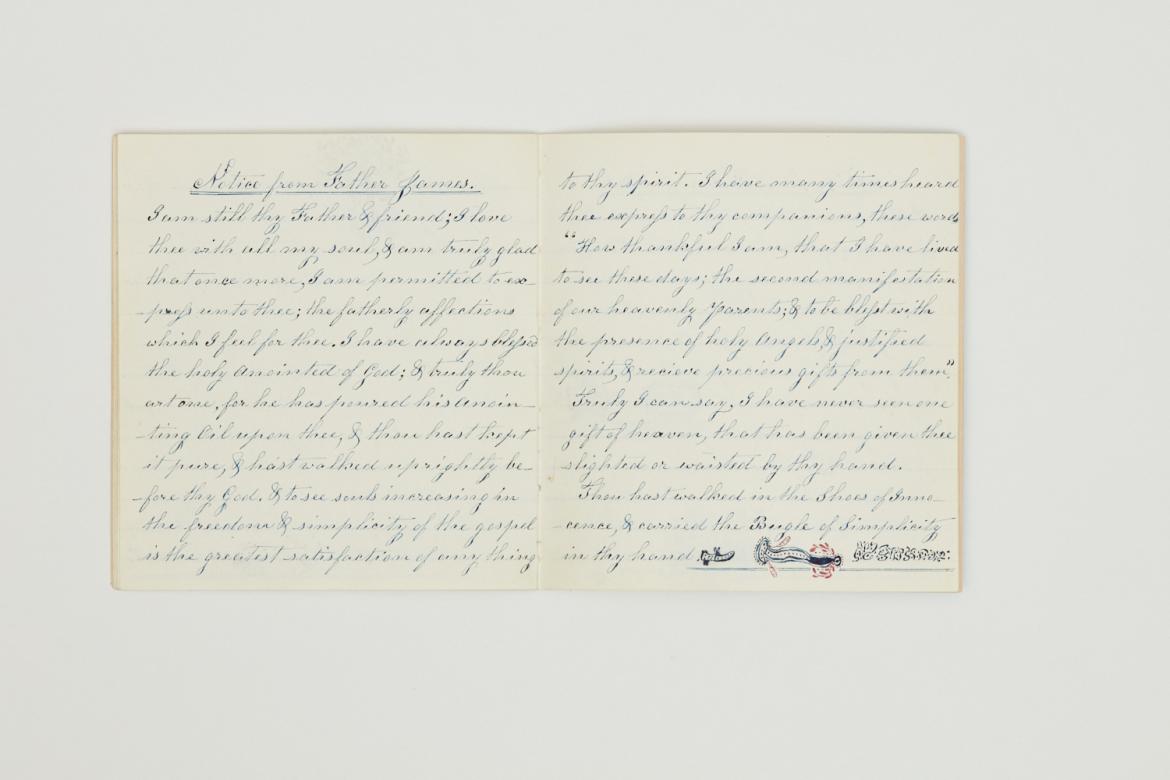 Notice from Father James.
I am still thy Father & friend; I love
thee with all my soul, & am truly glad
that once more, I am permitted to ex-
-press unto thee; the fatherly affections
which I feel for thee. I have always blessed
the holy Anointed of God; & truly thou
art one, for he has poured his Anoin-
-ting Oil upon thee, & thou hast kept
it pure, & hast walked uprightly be-
-fore thy God. & to see souls increasing in
the freedom & simplicity of the gospel
is the greatest satisfaction of any thing
to thy spirit. I have many times heard
thee express to thy companions, these words
"How thankful I am, that I have lived
to see these days; the second manifestation
of our heavenly Parents; & to be blest with
the presence of holy Angels, & justified
spirits, & recieve precious gifts from them".
Truly I can say, I have never seen one
gift of heaven, that has been given thee
slighted or waisted by thy hand.
Thou hast walked in the Shoes of Inno-
-cence, & carried the Bugle of Simplicity
in thy hand